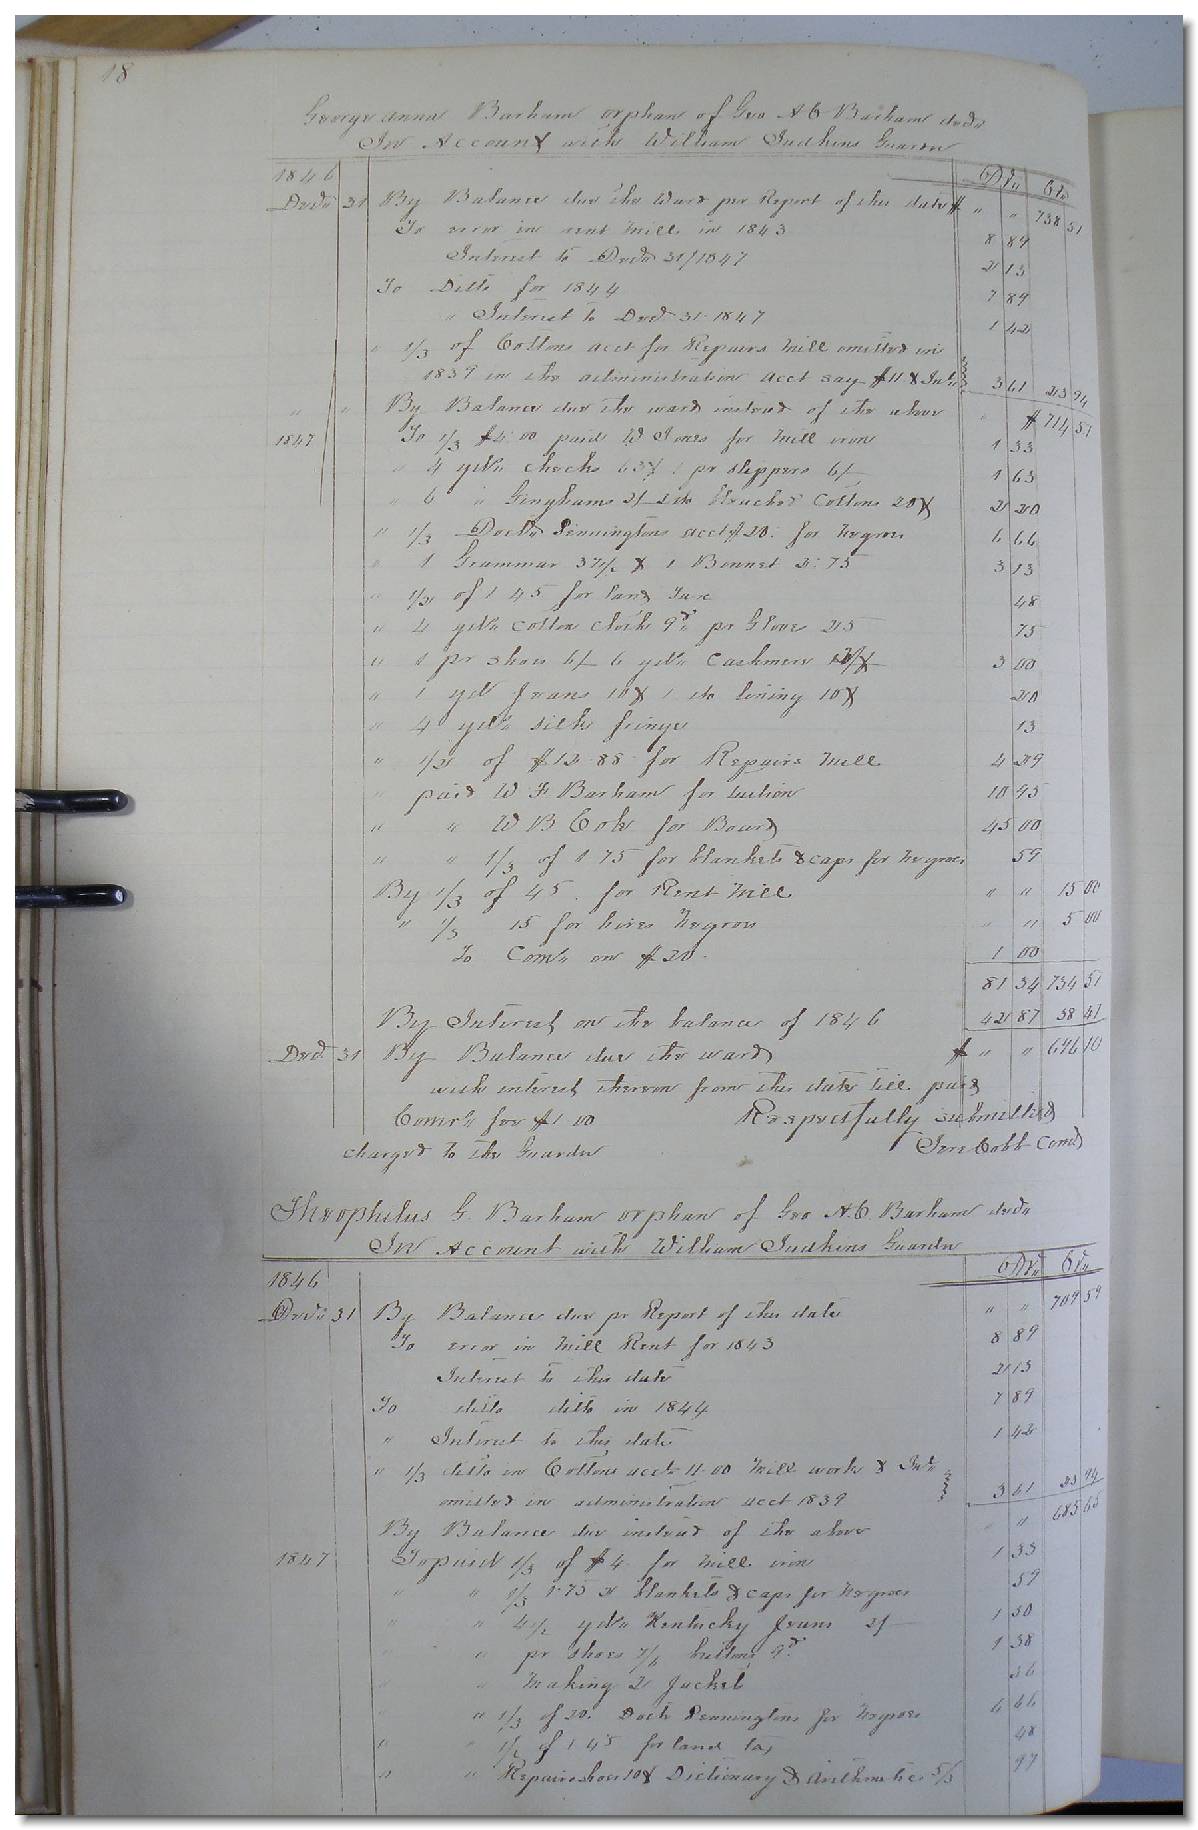 18
George anna Barham orphan of Geo A C Barham decd
In Account with William Judkins Guardn
1846 Drs Crs
Decr 31 By Balance due the Ward per Report of this date $ " " 738 51
To error in rent Mill in 1843 8 89
Interest to Decr 31/1847 2 13
To Ditto for 1844 7 89
" Interest to Decr 31 1847 1 42
" 1/3 of Cottons acct for Repairs Mill omitted in
1839 in the administration acct say $11 & Int 3 61 23 94
" " By Balance due the ward instead of the above " $ 714 57
1847 To 1/3 $4.00 paid W Jones for Mill iron 1 33
" 4 yds checks 63¢ 1 pr slippers 6/ 1 63
" 6 " Ginghams 2/ 1 do bleached Cottons 20¢ 2 20
" 1/3 Doctr Penningtons acct $20. for negroes 6 66
" 1 Grammar 37 1/2 & 1 Bonnet 2.75 3 13
" 1/3 of 1 45 for land Tax 48
" 4 yds cotton cloth 9d pr Gloves 25 75
" 1 pr shoes 6/ 6 yds Cashmere 3 00
" 1 yd Jeans 10¢ 1 do lining 10¢ 20
" 4 yds silk fringe 13
" 1/3 of $12.88 for Repairs Mill 4 29
" paid W F Barham for tuition 10 95
" " W B Cok for Board 45 00
" " 1/3 of 1 75 for blankets & caps for negroes 59
By 1/3 of 45. for Rent Mill " " 15 00
" 1/3 15 for hires Negroes " " 5 00
To Coms on $20. 1 00
81 34 734 51
By Interest on the balance of 1846 42 87 38 47
Decr 31 By Balance due the ward $ " " 696 10
with interest thereon from this date till paid
Comrs fee $1.00 Respectfully submitted
charged to the Guardn Jere Cobb Comr
Theophilus G. Barham orphan of Geo A.C. Barham decd
In Account with William Judkins Guardn
1846 Drs Crs
Decr 31 By Balance due pr Report of this date " " 709 59
To error in Mill Rent for 1843 8 89
Interest to this date 2 13
To ditto ditto in 1844 7 89
" Interest to this date 1 42
" 1/3 ditto in Cottons acct 11.00 Mill work & Int
omitted in administration acct 1839 3 61 23 94
By Balance due instead of the above " " 685 65
1847 To paid 1/3 of $4. for Mill iron 1 33
" " 1/3 1.75 2 blankets & caps for negroes 59
" " 4 1/2 yds Kentucky Jeans 2/ 1 50
" " pr shoes 7/6 buttons 9d 1 38
" " Making 2 Jacket 36
" " 1/3 of 20. Doctr Penningtons for Negroes 6 66
" " 1/3 of 1 45 for land tax 48
" " Repair shoes 10¢ Dictionary & Arithmetic 5/3 97